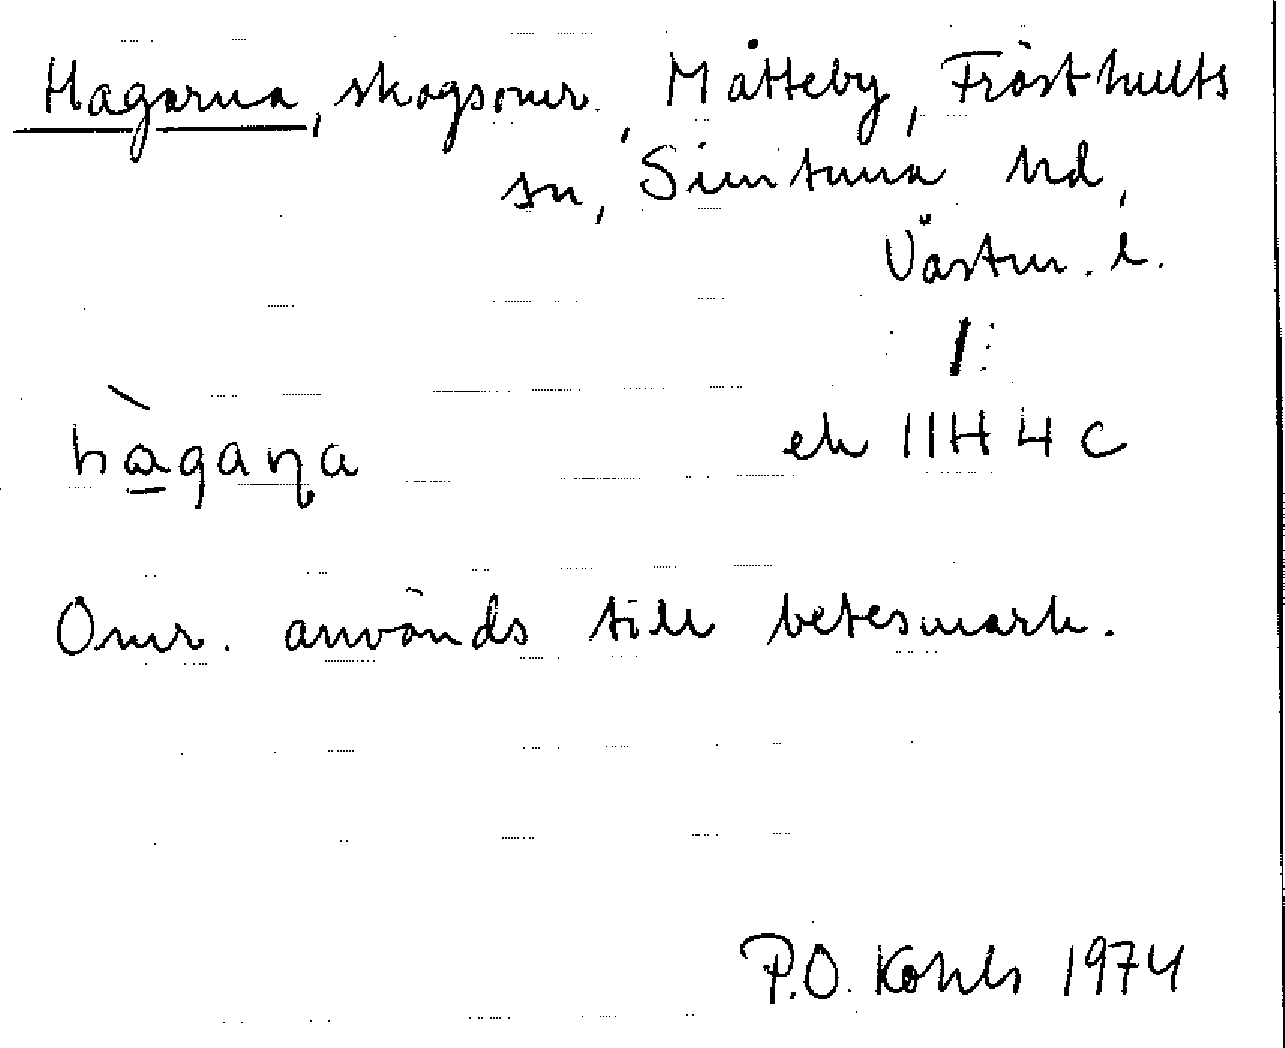 Hagarna, skogsomr., Måtteby, Frösthults
sn, Simtuna hd,
Västm. l.
hàgaɳa
ek 11H 4c
Omr. används till betesmark.
P.O. Kohls 1974